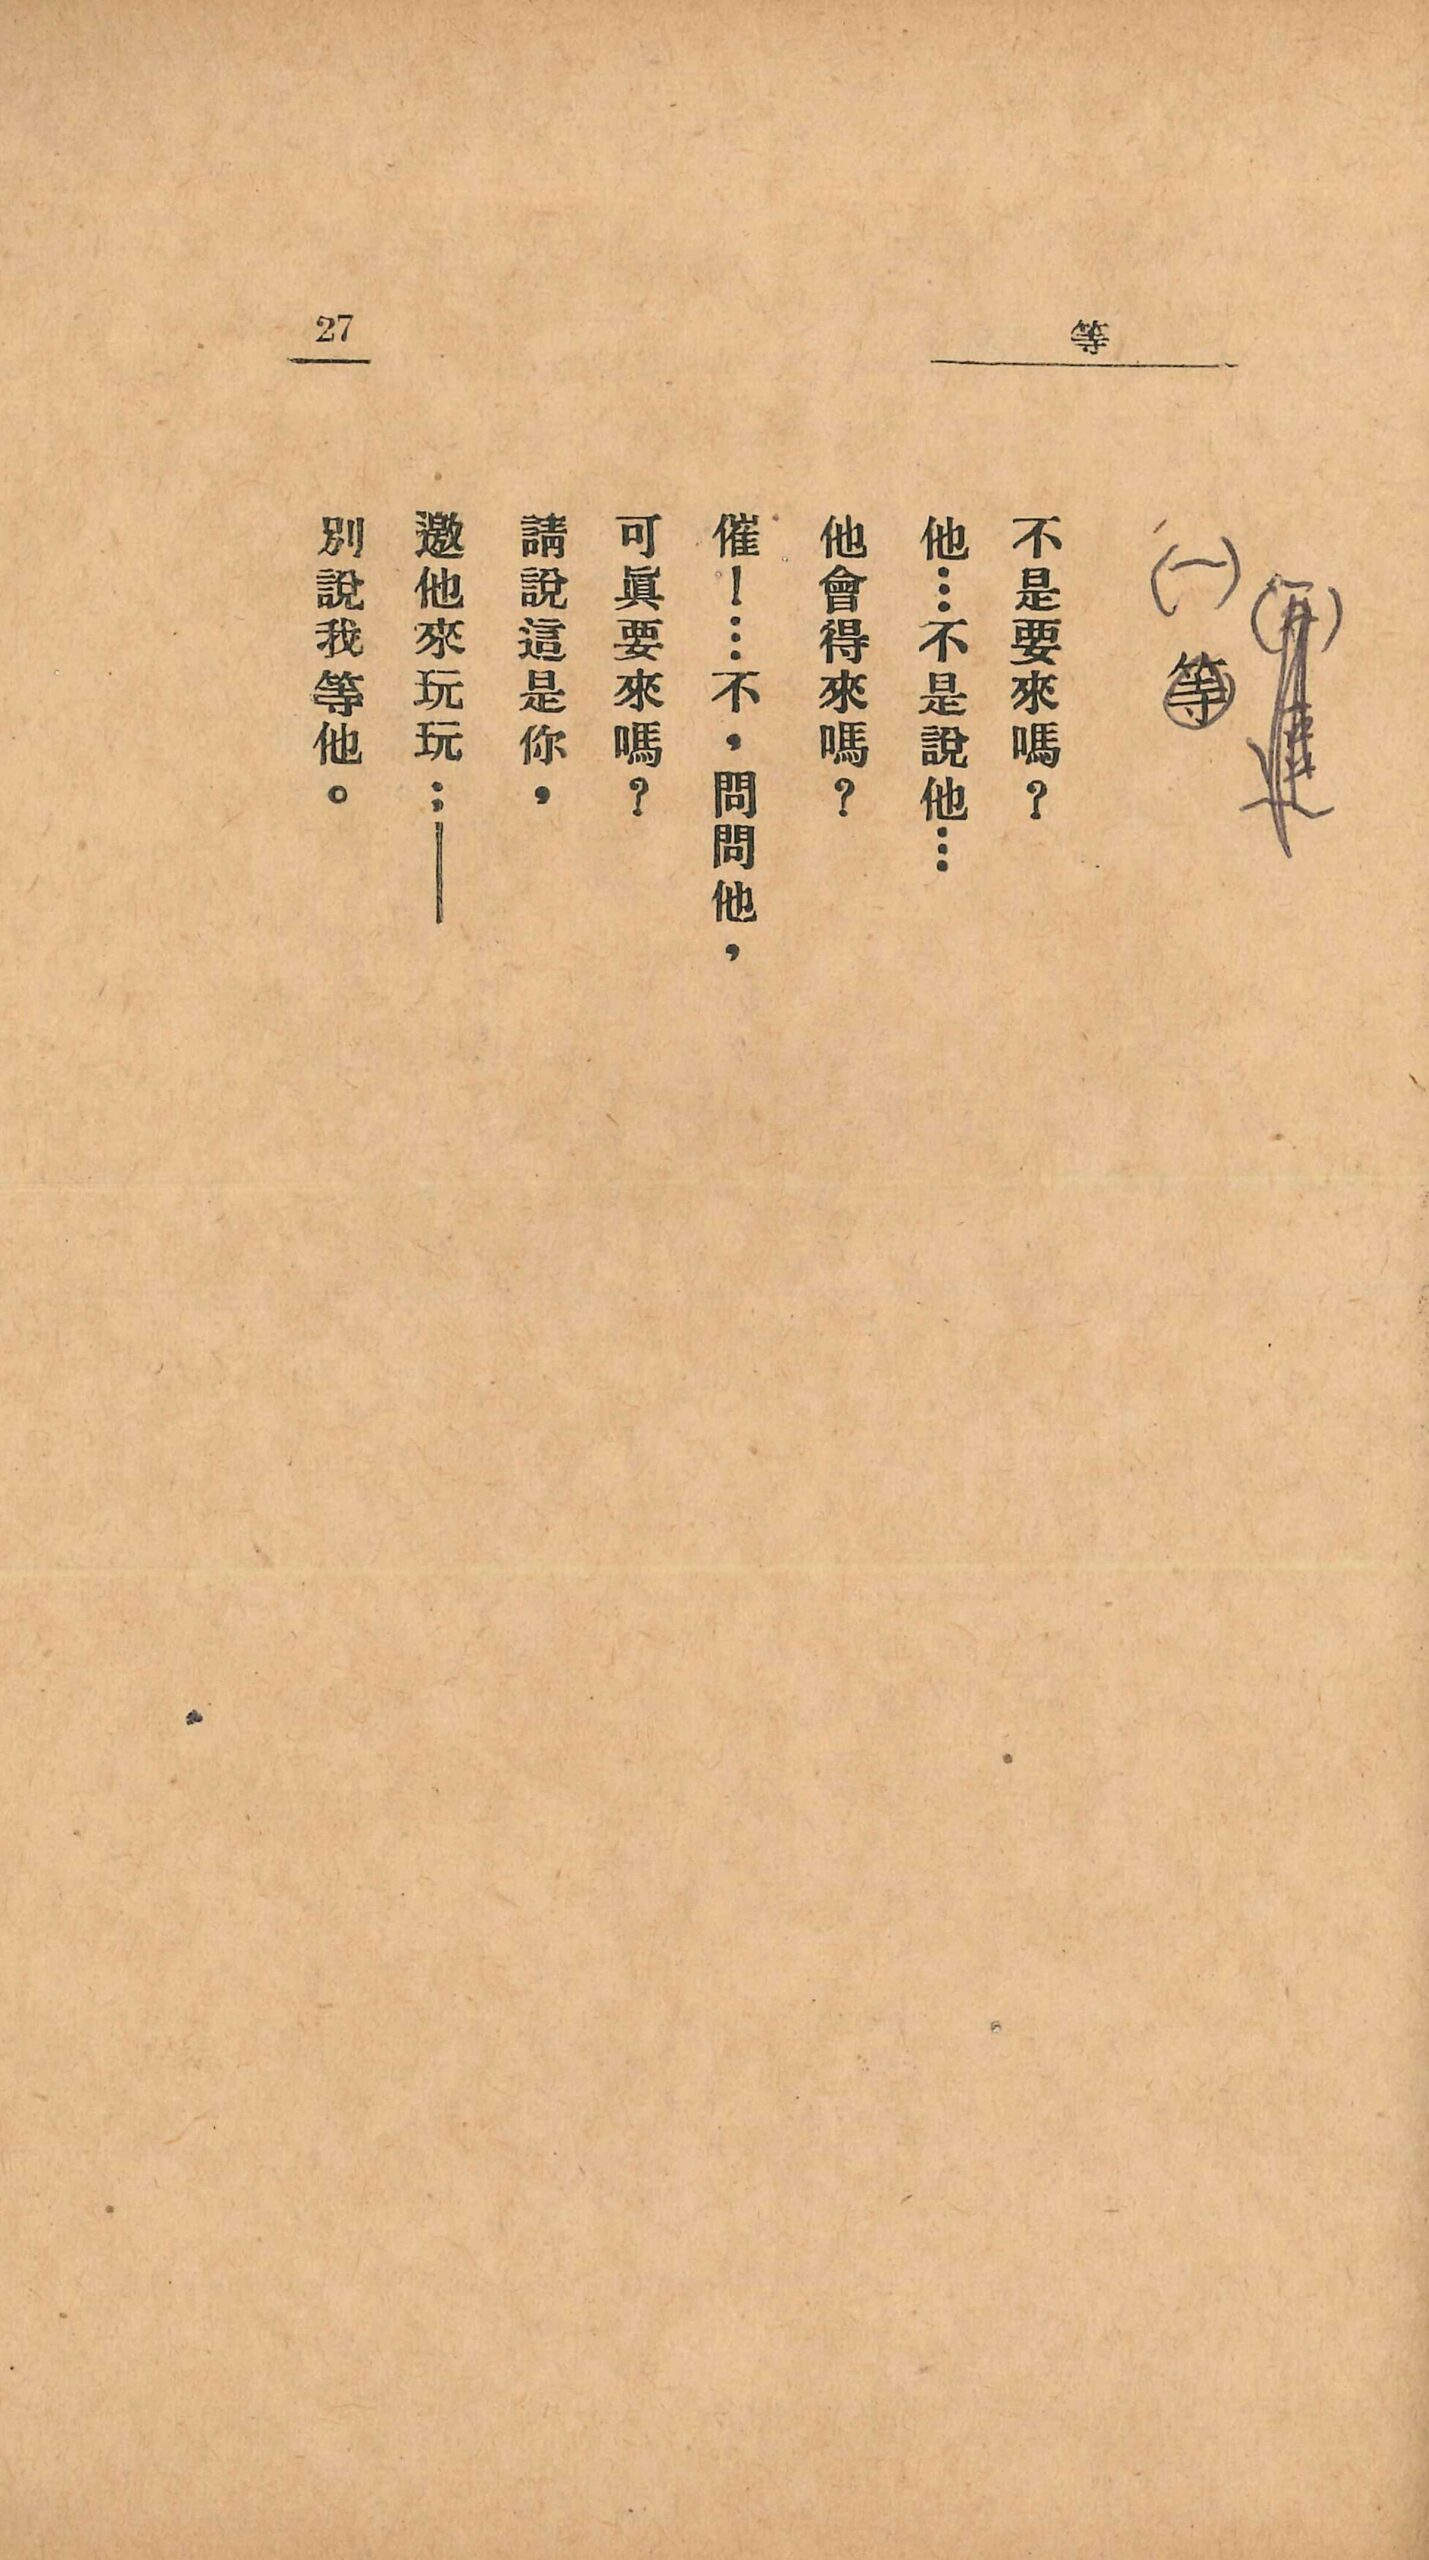 等
27
(一)
等
不是要來嗎？
他…不是說他…
他會得來嗎？
催！…不，問問他，
可眞要來嗎？
請說這是你，
邀他來玩玩；——
別說我等他。